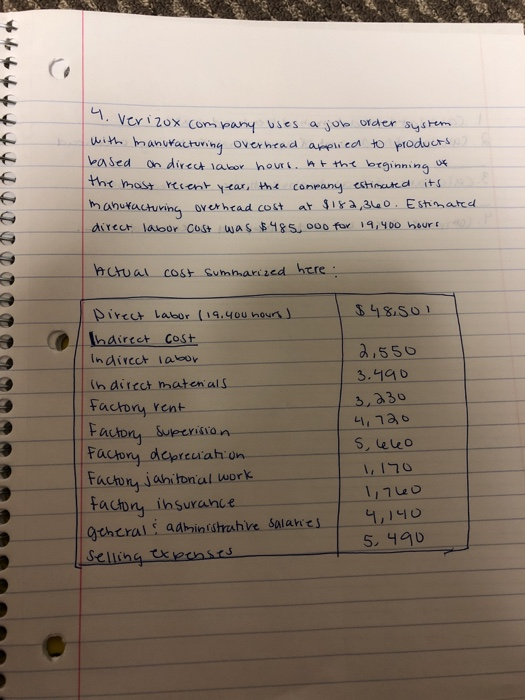 4. Verizox company uses a job order system
with manufacturing overhead applied to products
based on direct labor hours. At the beginning of
the most recent year, the company estimated its
manufacturing overhead cost at $182,360. Estimated
direct labor cost was $485,000 for 19,400 hours
Actual cost summarized here:
Direct Labor (19.400 hours) $48,501
Indirect cost
Indirect labor 2,550
Indirect materials 3.490
Factory rent 3,230
Factory supervision 4,720
Factory depreciation 5,660
Factory janitorial work 1,170
factory insurance 1,760
general & administrative salaries 4,140
Selling expenses 5,490